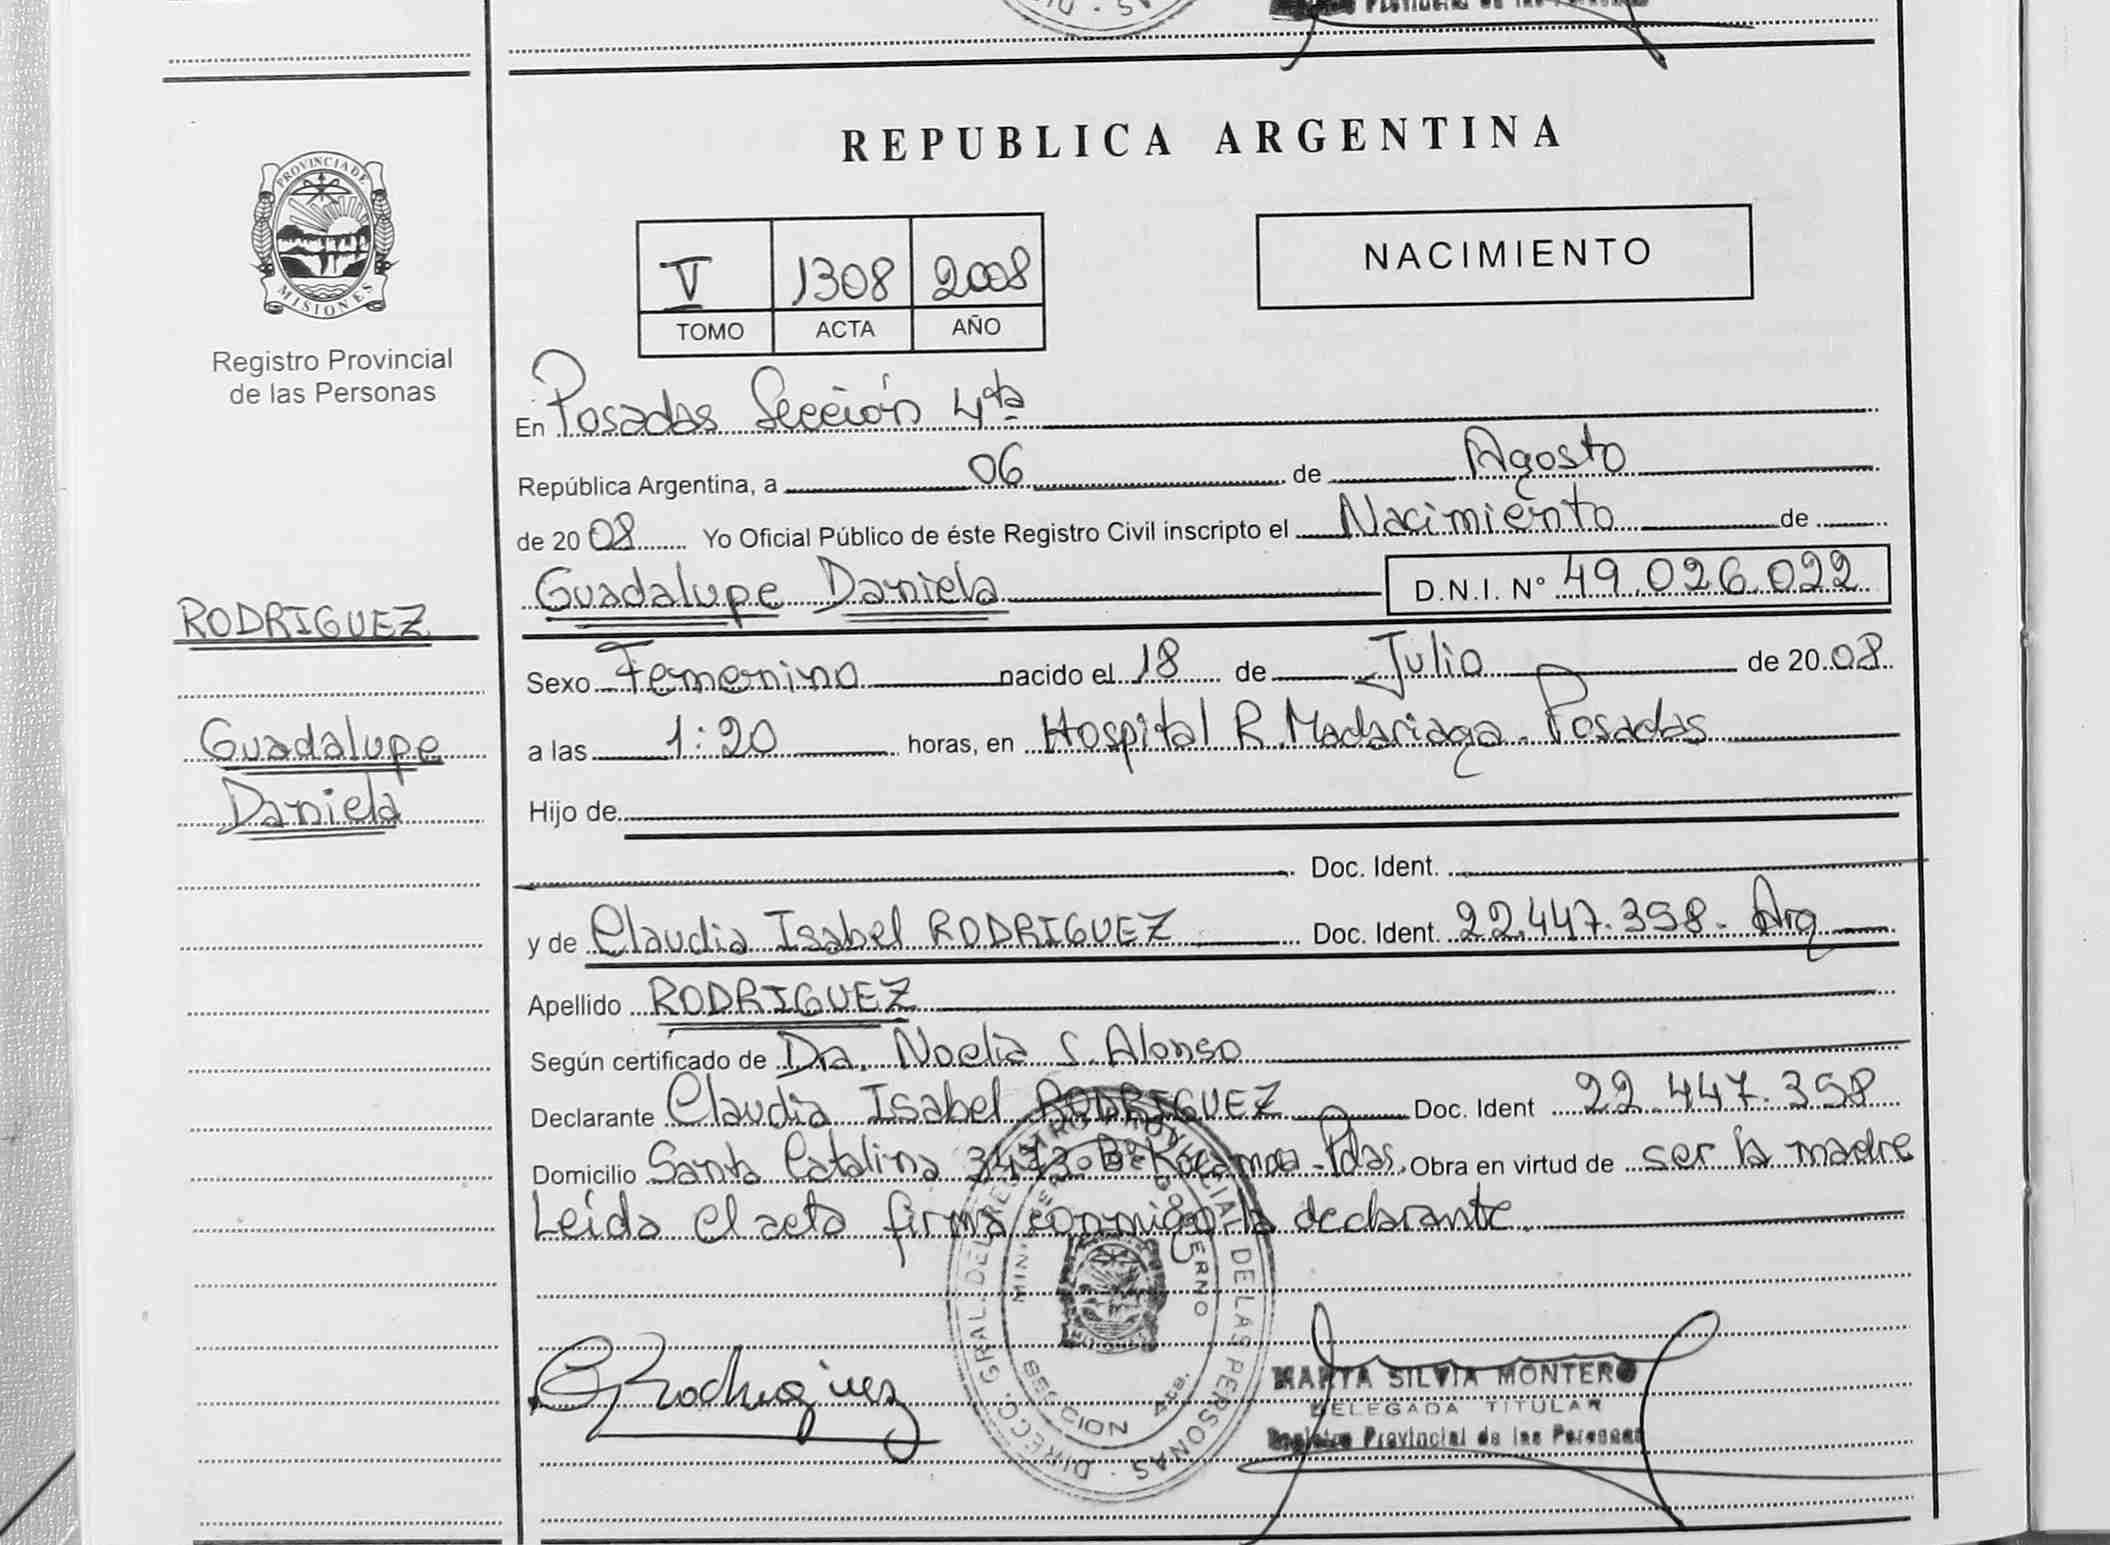 REPUBLICA ARGENTINA
PROVINCIA DE
MISIONES
Registro Provincial
de las Personas
V 1308 2008
TOMO ACTA AÑO
NACIMIENTO
En Posadas Sección 4ta
República Argentina, a 06 de Agosto
de 2008 Yo Oficial Público de éste Registro Civil inscripto el Nacimiento de
Guadalupe Daniela D.N.I. Nº 49.026.022
RODRIGUEZ
Guadalupe
Daniela
Sexo Femenino nacido el 18 de Julio de 2008
a las 1:20 horas, en Hospital R. Madariaga - Posadas
Hijo de
Doc. Ident.
y de Claudia Isabel RODRIGUEZ Doc. Ident. 22.447.358 - Arg
Apellido RODRIGUEZ
Según certificado de Dra. Noelia S. Alonso
Declarante Claudia Isabel RODRIGUEZ Doc. Ident 22.447.358
Domicilio Santa Catalina 3473 Bº Rocamora - Pdas. Obra en virtud de ser la madre
Leída el acta firma conmigo la declarante.
DIRECC. GRAL. DEL REGISTRO PROVINCIAL DE LAS PERSONAS
MINISTERIO DE GOBIERNO
SECCION 4ta.
C Rodriguez
MARTA SILVIA MONTERO
DELEGADA TITULAR
Registro Provincial de las Personas